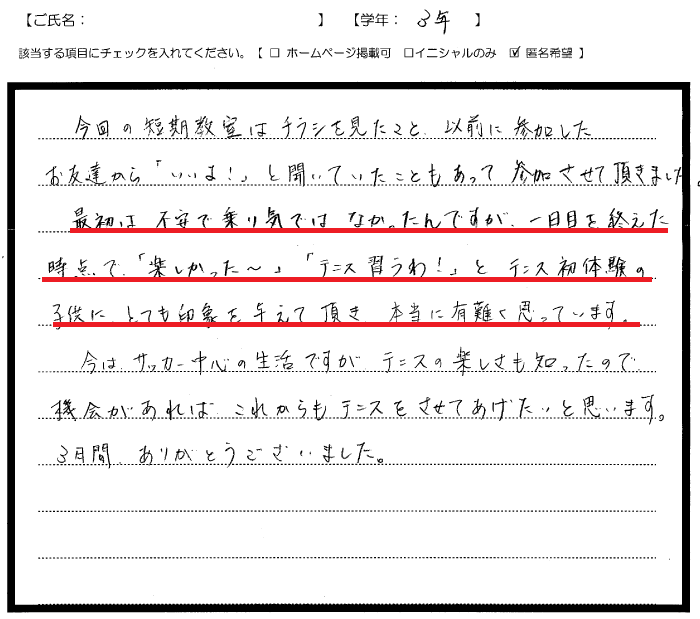 【ご氏名： 】 【学年： 3年 】
該当する項目にチェックを入れてください。【 □ ホームページ掲載可 □イニシャルのみ ☑ 匿名希望 】
今回の短期教室はチラシを見たこと、以前に参加した
お友達から「いいよ！」と聞いていたこともあって参加させて頂きました。
最初は不安で乗り気ではなかったんですが、一日目を終えた
時点で、「楽しかった～」「テニス習うわ！」とテニス初体験の
子供にとても印象を与えて頂き本当に有難く思っています。
今はサッカー中心の生活ですがテニスの楽しさも知ったので
機会があればこれからもテニスをさせてあげたいと思います。
3月間、ありがとうございました。